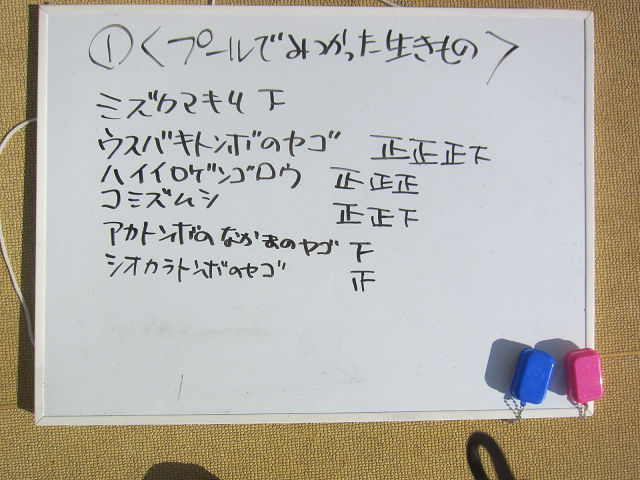 ①〈プールでみつかった生きもの〉
ミズカマキリ 下
ウスバキトンボのヤゴ 正正正下
ハイイロゲンゴロウ 正正正
コミズムシ 正正下
アカトンボのなかまのヤゴ 下
シオカラトンボのヤゴ 正